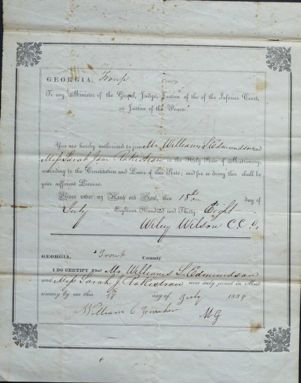 GEORGIA, Troup County
To any Minister of the Gospel, Judge, Justice of the of the Inferior Court,
or Justice of the Peace.
You are hereby authorized to join Mr. Williams S. Edmundson
Miss Sarah Jane in the Holy State of Matrimony,
according to the Constitution and Laws of this State; and for so doing this shall be
your sufficient License.
Given under my Hand and Seal, this 18th day of
July Eighteen Hundred and Thirty Eight
Wiley Wilson C.C.O.
GEORGIA, Troup County
I DO CERTIFY that Mr. Williams S. Edmundson
and Miss Sarah J. were duly joined in Mat-
rimony by me this day of July 1838
William C.
M G